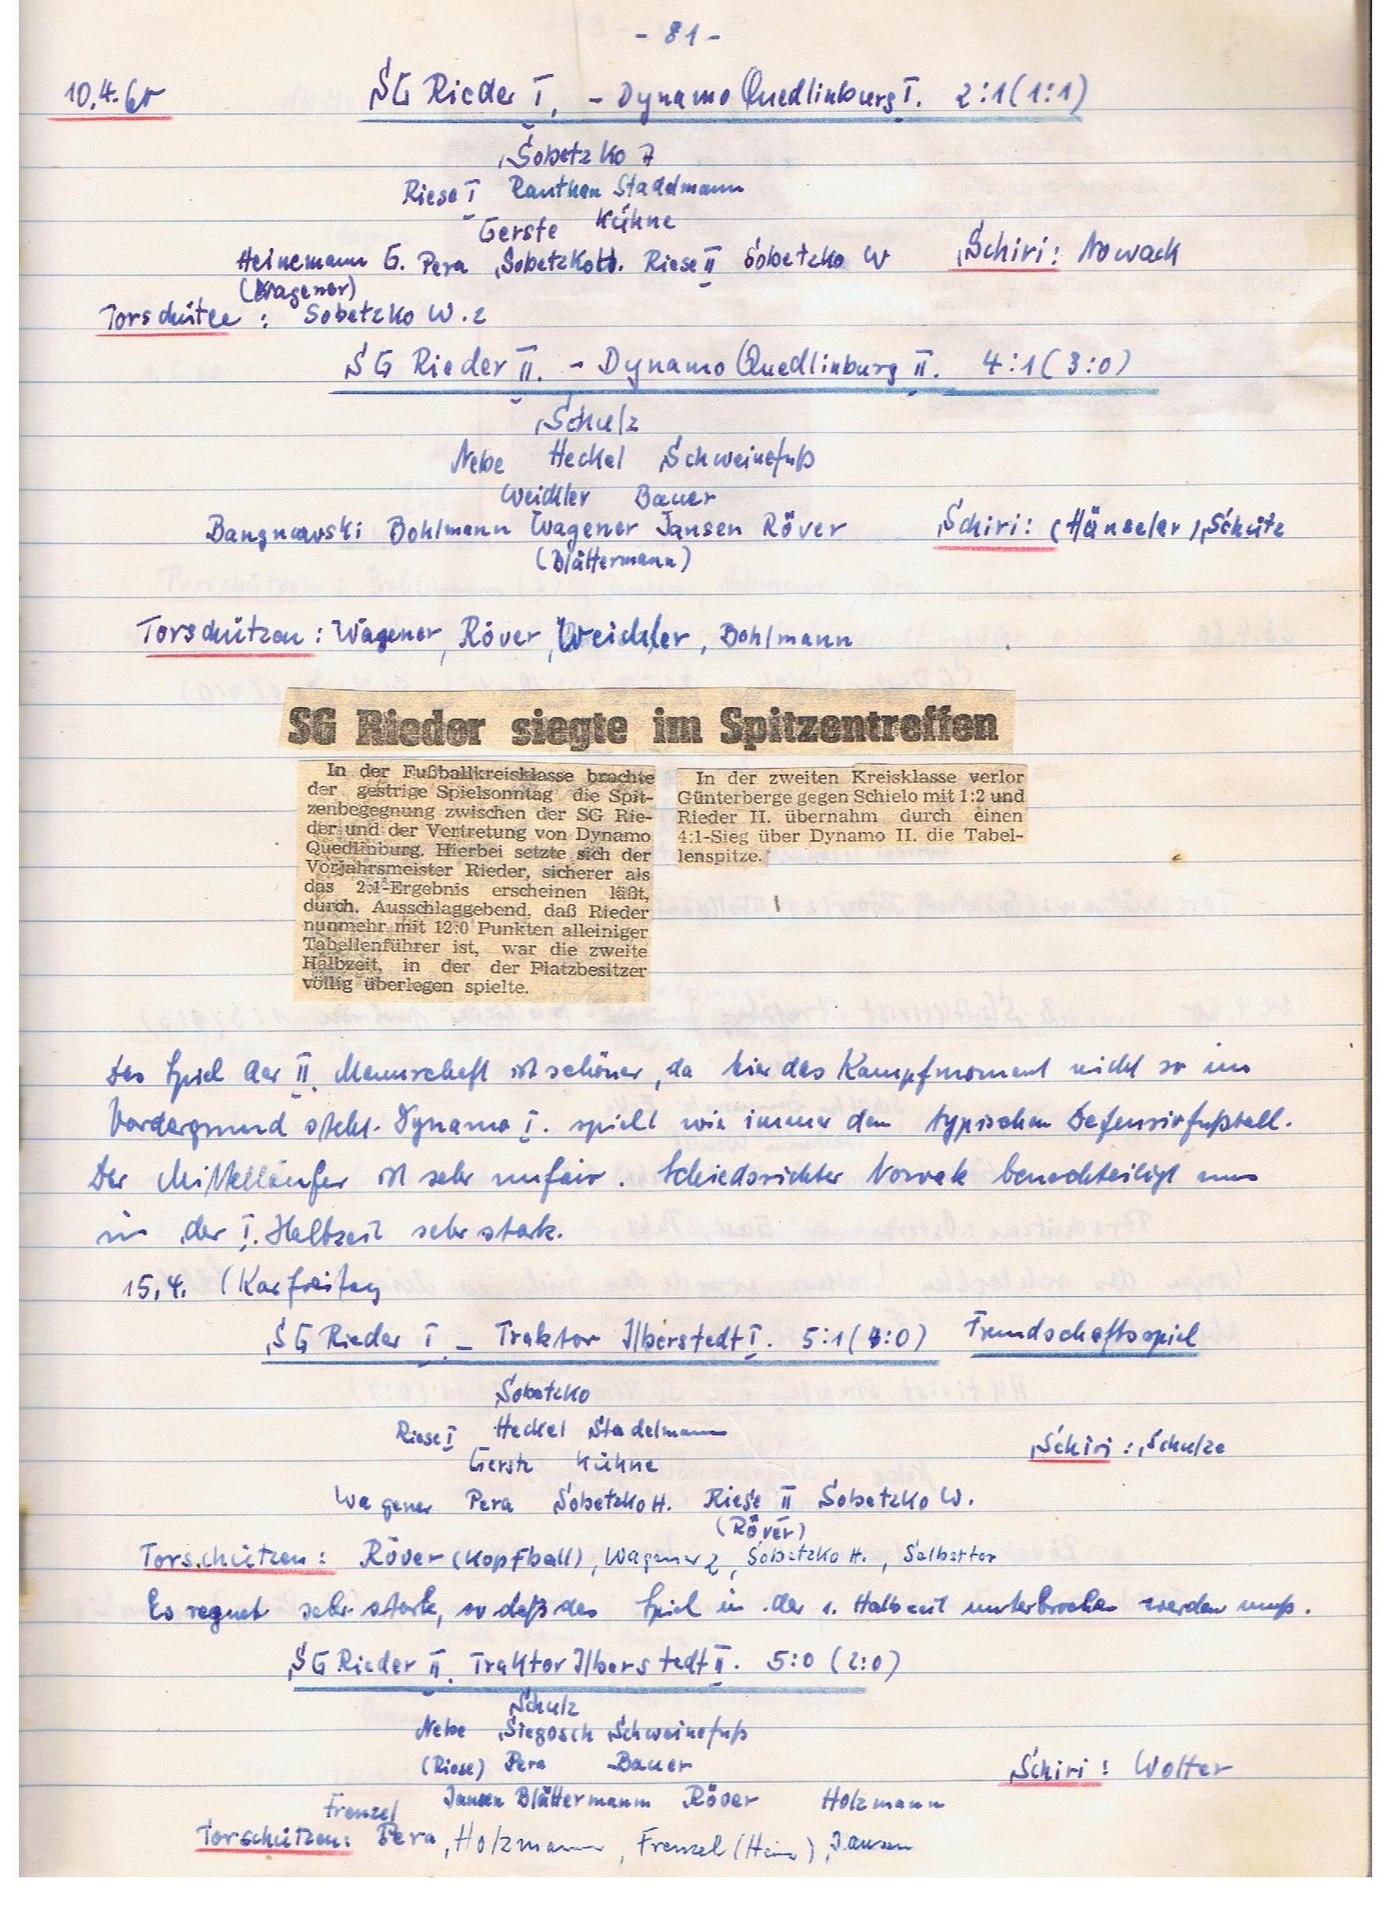 - 81 -
10.4.60 SG Rieder I. - Dynamo Quedlinburg I. 2:1 (1:1)
Sobetzko
Riese I Ranthen Stadelmann
Gerste Kühne
Heinemann G. Pera Sobetzko Riese II Sobetzko W Schiri: Nowack
(Wagener)
Torschütze : Sobetzko W. 2
SG Rieder II. - Dynamo Quedlinburg II. 4:1 (3:0)
Schulz
Nebe Heckel Schweinefuß
Weickler Bauer
Bangnowski Bohlmann Wagener Jansen Röver Schiri: (Hänseler) Schütz
(Blättermann)
Torschützen : Wagener, Röver, Weickler, Bohlmann
SG Rieder siegte im Spitzentreffen
In der Fußballkreisklasse brachte
der gestrige Spielsonntag die Spit-
zenbegegnung zwischen der SG Rie-
der und der Vertretung von Dynamo
Quedlinburg. Hierbei setzte sich der
Vorjahrsmeister Rieder, sicherer als
das 2:1-Ergebnis erscheinen läßt,
durch. Ausschlaggebend, daß Rieder
nunmehr mit 12:0 Punkten alleiniger
Tabellenführer ist, war die zweite
Halbzeit, in der der Platzbesitzer
völlig überlegen spielte.
In der zweiten Kreisklasse verlor
Günterberge gegen Schielo mit 1:2 und
Rieder II. übernahm durch einen
4:1-Sieg über Dynamo II. die Tabel-
lenspitze.
Das Spiel der II. Mannschaft ist schöner, da hier das Kampfmoment nicht so im
Vordergrund steht. Dynamo I. spielt wie immer den typischen Defensivfußball.
Der Mittelläufer ist sehr unfair. Schiedsrichter Nowak benachteiligt uns
in der I. Halbzeit sehr stark.
15.4. (Karfreitag
SG Rieder I - Traktor Ilberstedt I. 5:1 (4:0) Freundschaftsspiel
Sobetzko
Riese I Heckel Stadelmann
Gerste Kühne Schiri : Schulze
Wagener Pera Sobetzko H. Riese II Sobetzko W.
(Röver)
Torschützen : Röver (Kopfball), Wagener 2, Sobetzko H., Selbsttor
Es regnet sehr stark, so daß das Spiel in der 1. Halbzeit unterbrochen werden muß.
SG Rieder II. Traktor Ilberstedt II. 5:0 (2:0)
Schulz
Nebe Siegosch Schweinefuß
(Riese) Pera Bauer Schiri : Wolter
Frenzel Jansen Blättermann Röver Holzmann
Torschützen: Pera, Holzmann, Frenzel, Jansen